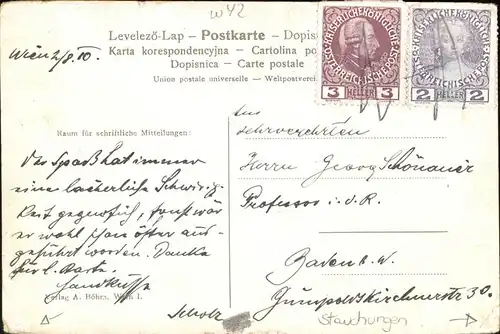 W42
Levelező-Lap – Postkarte – Dopis
Karta korespondencyjna – Cartolina po
Dopisnica – Carte postale
Union postale universelle – Weltpostverei
KAISERLICHE KÖNIGLICHE
ÖSTERREICHISCHE POST
3 HELLER 3
KAISERLICHE KÖNIGLICHE
ÖSTERREICHISCHE POST
2 HELLER 2
Wien 2/8 10.
Raum für schriftliche Mitteilungen:
Der Spaß hat immer
eine
gegnerisch, sonst wär
er wohl schon öfter aus-
geführt worden. Danke
für l. Karte.
Handküsse
Scholz
Verlag A. Böhrs, Wien I.
sehrverehrten
Herrn Georg Schönauer
Professor i. d. R.
Baden b. W.
Gumpoldskirchnerstr 30.
Stauchungen